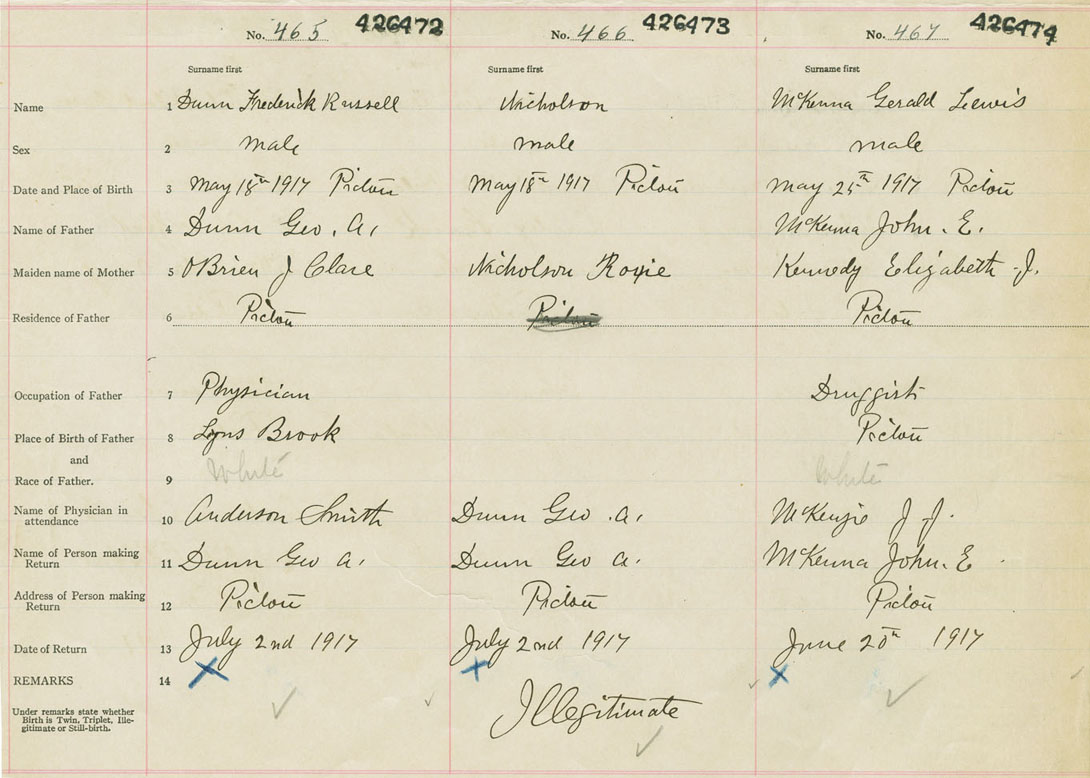 No. 465 426472 No. 466 426473 No. 467 426474
Surname first Surname first Surname first
Name 1 Dunn Frederick Russell Nicholson McKenna Gerald Lewis
Sex 2 male male male
Date and Place of Birth 3 May 18th 1917 Pictou May 18th 1917 Pictou May 25th 1917 Pictou
Name of Father 4 Dunn Geo. A. McKenna John. E.
Maiden name of Mother 5 OBrien J Clare Nicholson Roxie Kennedy Elizabeth J.
Residence of Father 6 Pictou Pictou Pictou
Occupation of Father 7 Physician Druggist
Place of Birth of Father 8 Lyons Brook Pictou
and
Race of Father. 9 White White
Name of Physician in
attendance 10 Anderson Smith Dunn Geo. A. McKenzie J J.
Name of Person making
Return 11 Dunn Geo A. Dunn Geo A. McKenna John. E
Address of Person making
Return 12 Pictou Pictou Pictou
Date of Return 13 July 2nd 1917 July 2nd 1917 June 20th 1917
REMARKS 14
Under remarks state whether
Birth is Twin, Triplet, Ille-
gitimate or Still-birth.
Illegitimate